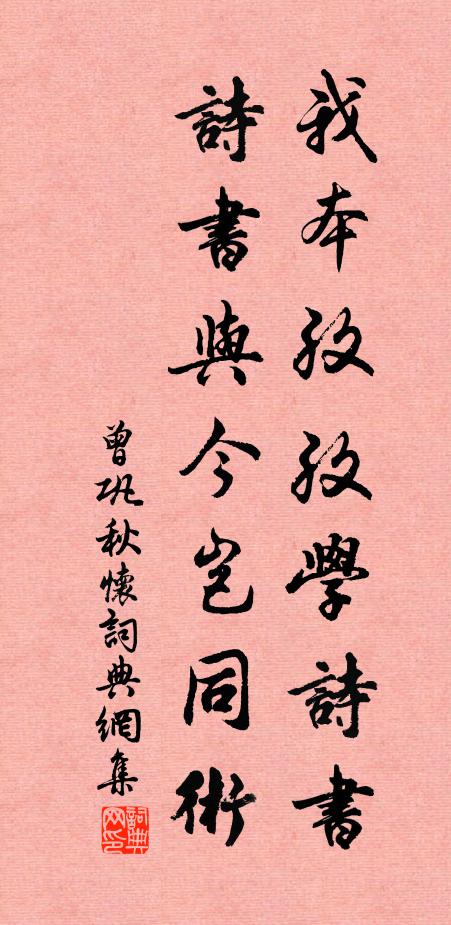 我本孜孜學詩書
詩書與今豈同術
曾巩秋懷詞典網集
詞典网印